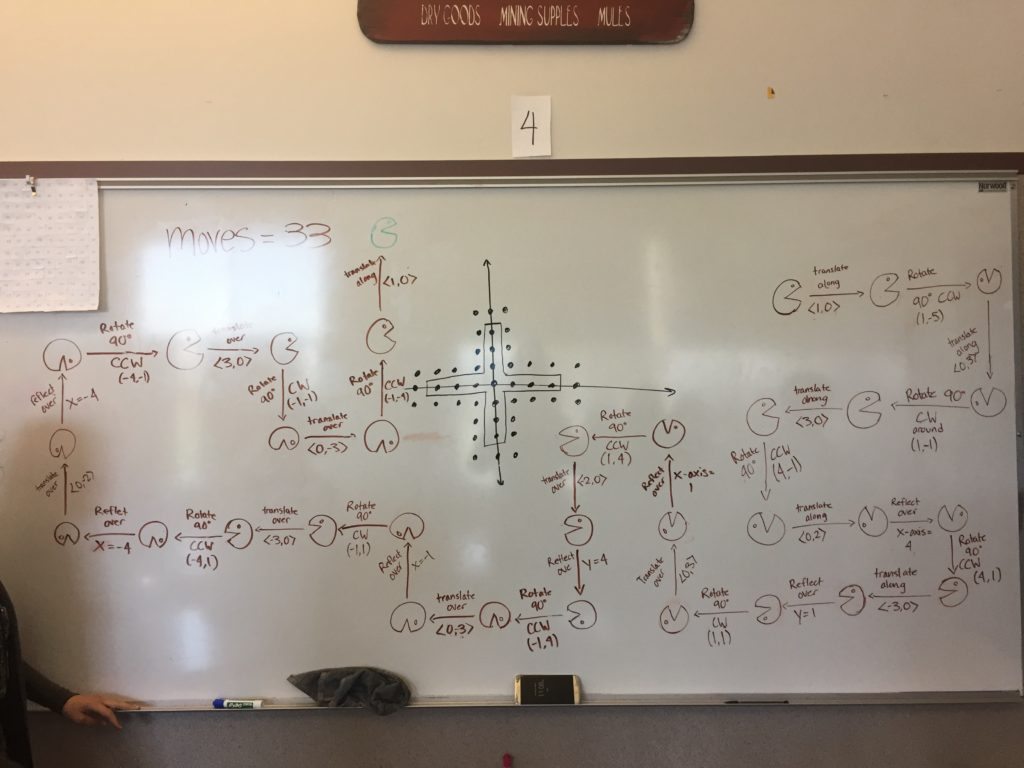 DRY GOODS MINING SUPPLES MULES
4
Norwood
moves = 33
translate
along
<1,0>
Rotate
90° CCW
(1,-5)
translate
along
<0,3>
Rotate 90°
CW
around
(1,-1)
translate
along
<3,0>
Rotate
90°
CCW
(4,-1)
translate
along
<0,2>
Reflect
over
X-axis=
4
Rotate
90°
CCW
(4,1)
translate
along
<-3,0>
Reflect
over
y=1
Rotate
90°
CW
(1,1)
Translate
over
<0,3>
Reflect
over
X-axis=
1
Rotate
90°
CCW
(1,4)
translate
over
<-2,0>
Reflect
over
y=4
Rotate
90°
CCW
(-1,4)
translate
over
<0,-3>
Reflect
over
X=-1
Rotate
90°
CW
(-1,1)
translate
over
<-3,0>
Rotate
90°
CCW
(-4,1)
Reflet
over
X=-4
translate
over
<0,-2>
Reflect
over
X=-4
Rotate
90°
CCW
(-4,-1)
translate
over
<3,0>
Rotate
90°
CW
(-1,-1)
translate
over
<0,-3>
Rotate
90°
CCW
(-1,-4)
translate
along
<1,0>